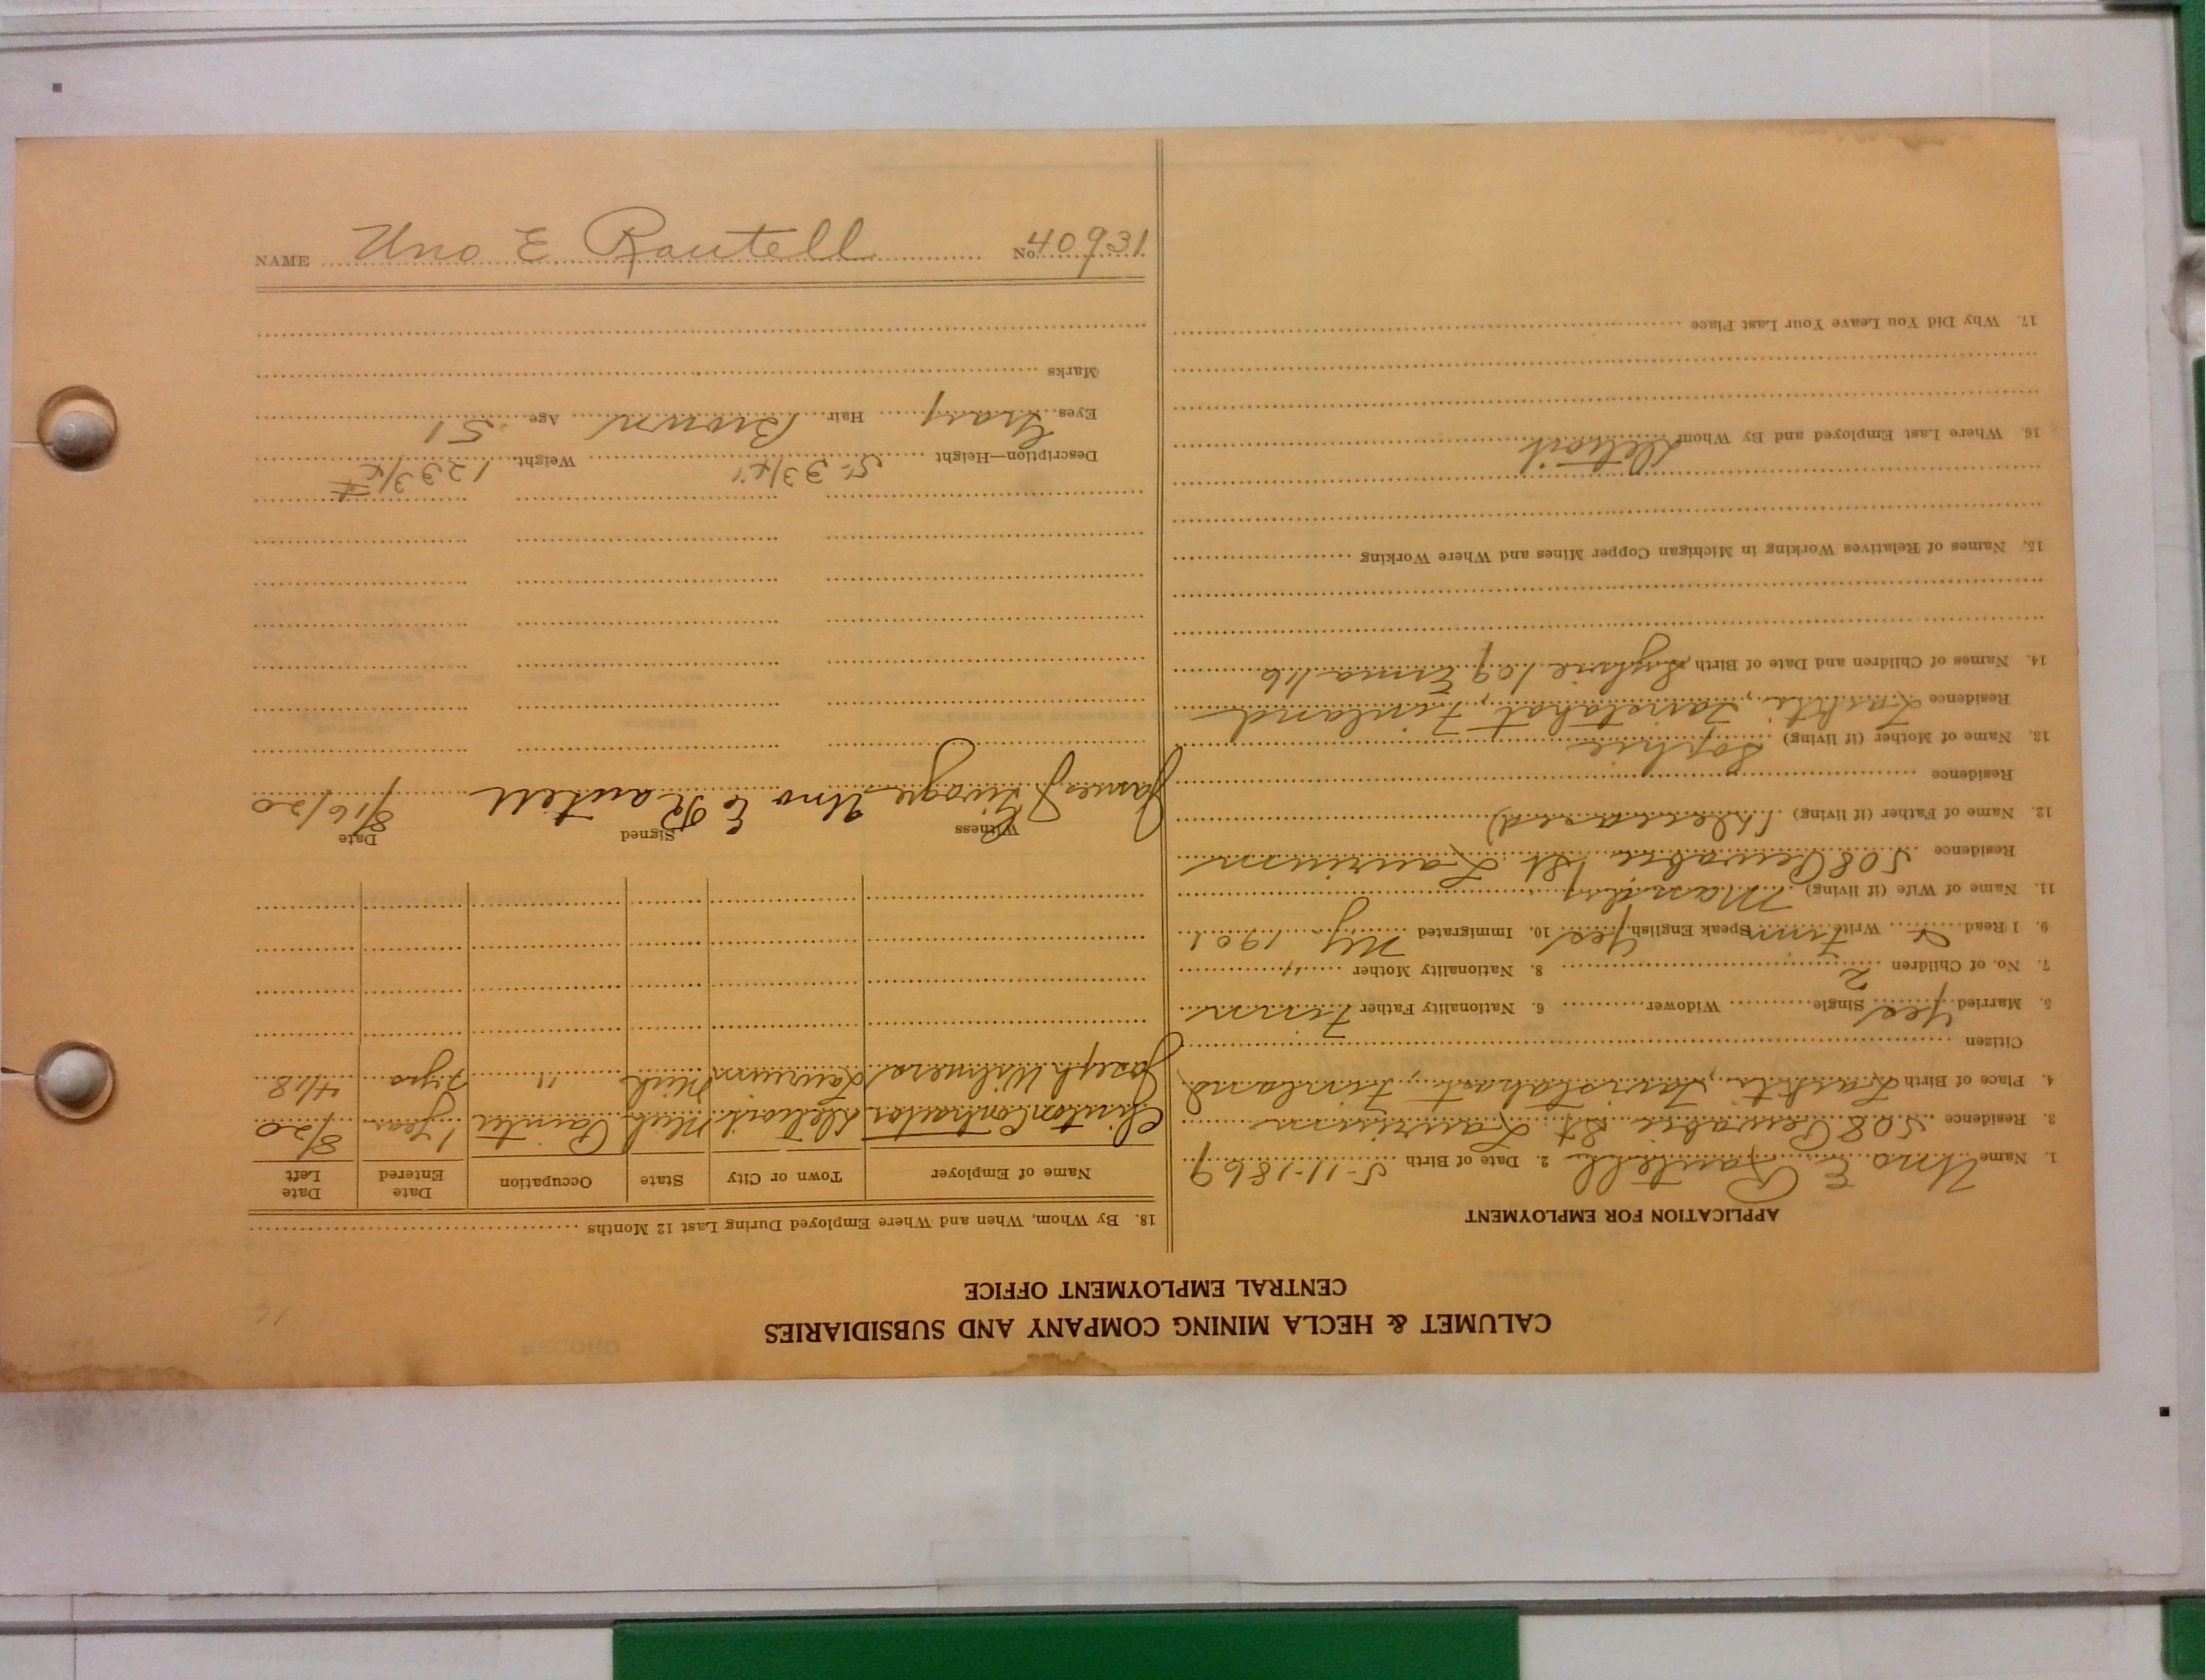 CALUMET & HECLA MINING COMPANY AND SUBSIDIARIES
CENTRAL EMPLOYMENT OFFICE
APPLICATION FOR EMPLOYMENT
1. Name Uno E Rautell 2. Date of Birth 5-11-1869
3. Residence 508 Pewabic St Laurium
4. Place of Birth Lashti, Tavistahat, Finland
Citizen
5. Married Yes Single Widower 6. Nationality Father Finn
7. No. of Children 2 8. Nationality Mother "
9. I Read & Write Finn Speak English Yes 10. Immigrated Ny 1901
11. Name of Wife (if living) Mandy
Residence 508 Pewabic St Laurium
12. Name of Father (if living) (Deceased)
Residence
13. Name of Mother (if living) Sophie
Residence Lashti, Tavistahat, Finland
14. Names of Children and Date of Birth Sylvie 109 Erma 1/16
15. Names of Relatives Working in Michigan Copper Mines and Where Working
16. Where Last Employed and By Whom Detroit
17. Why Did You Leave Your Last Place
18. By Whom, When and Where Employed During Last 12 Months
Name of Employer Town or City State Occupation Date Entered Date Left
Contractor Detroit Mich Painter 1 Year 8/20
Joseph Wilmers Laurium Mich " 2 yrs 4/18
Witness Signed Date
James Uno E Rautell 8/16/20
Description—Height 5' 3 3/4" Weight 123 3/4 #
Eyes Gray Hair Brown Age 51
Marks
NAME Uno E Rautell No. 40931
RECORD